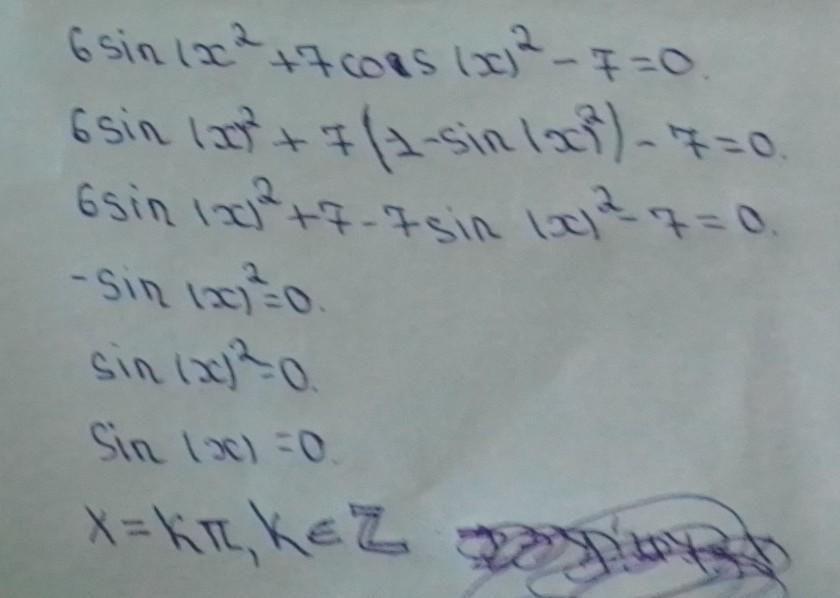 6sin(x² + 7cos(x)² - 7 = 0.
6sin(x)² + 7(1-sin(x)²) - 7 = 0.
6sin(x)² + 7 - 7sin(x)² - 7 = 0.
-sin(x)² = 0.
sin(x)² = 0.
Sin(x) = 0.
x = kπ, k ∈ ℤ